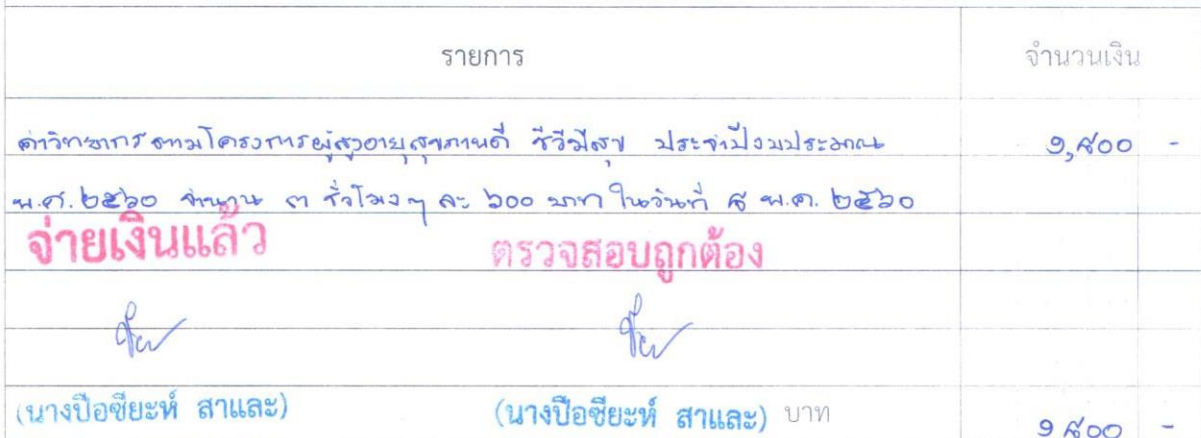 รายการ จำนวนเงิน
ค่าวิทยากรตามโครงการผู้สูงอายุสุขภาพดี ชีวีมีสุข ประจำปีงบประมาณ ๑,๘๐๐ -
พ.ศ. ๒๕๖๐ จำนวน ๓ ชั่วโมงๆ ละ ๖๐๐ บาท ในวันที่ ๘ พ.ค. ๒๕๖๐
จ่ายเงินแล้ว ตรวจสอบถูกต้อง
(นางปือซียะห์ สาและ) (นางปือซียะห์ สาและ) บาท ๑๘๐๐ -